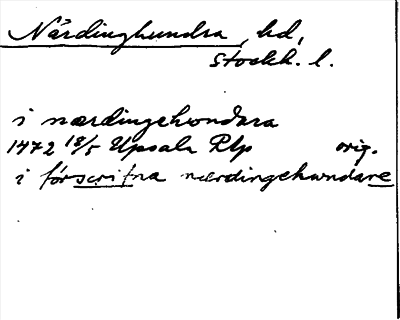 Närdinghundra, hd,
Stockh. l.
i nærdingehondara
1472 18/5 Upsala RAp orig.
i förscrifna nærdingehundare